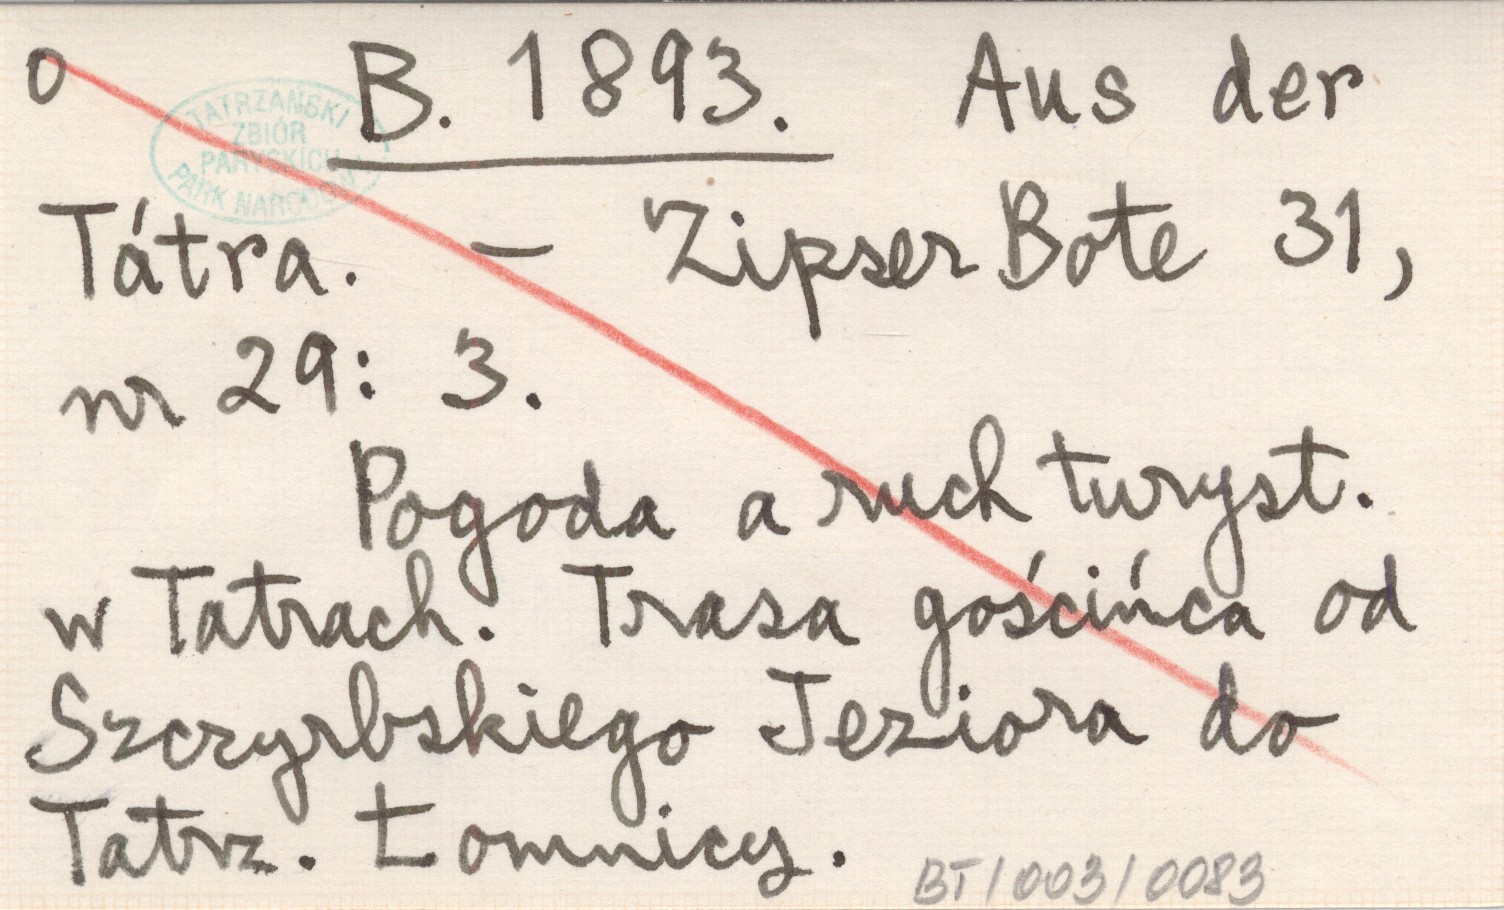 o B. 1893. Aus der
TATRZAŃSKI
ZBIÓR
PARYSKICH
PARK NARODOWY
Tátra. – Zipser Bote 31,
nr 29: 3.
Pogoda a ruch turyst.
w Tatrach. Trasa gościńca od
Szczyrbskiego Jeziora do
Tatrz. Łomnicy.
BT/003/0083